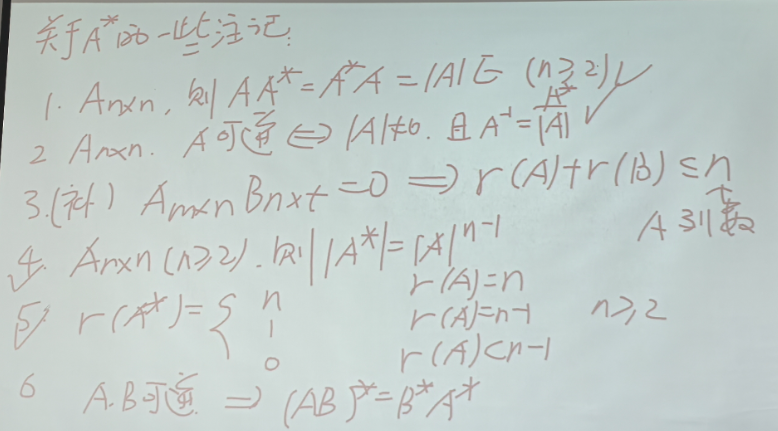 关于A*的一些注记:
1. Anxn, 则 AA* = A*A = |A|E (n≥2) ✓
2 Anxn. A可逆 ⟺ |A|≠0. 且 A⁻¹ = A*/|A| ✓
3.(补) Amxn Bnxt = 0 ⟹ r(A)+r(B) ≤ n
A列数
4. Anxn (n≥2). 则 |A*| = |A|ⁿ⁻¹
5. r(A*) = { n r(A)=n
1 r(A)=n-1 n≥2
0 r(A)<n-1
6 A.B可逆 ⟹ (AB)* = B*A*